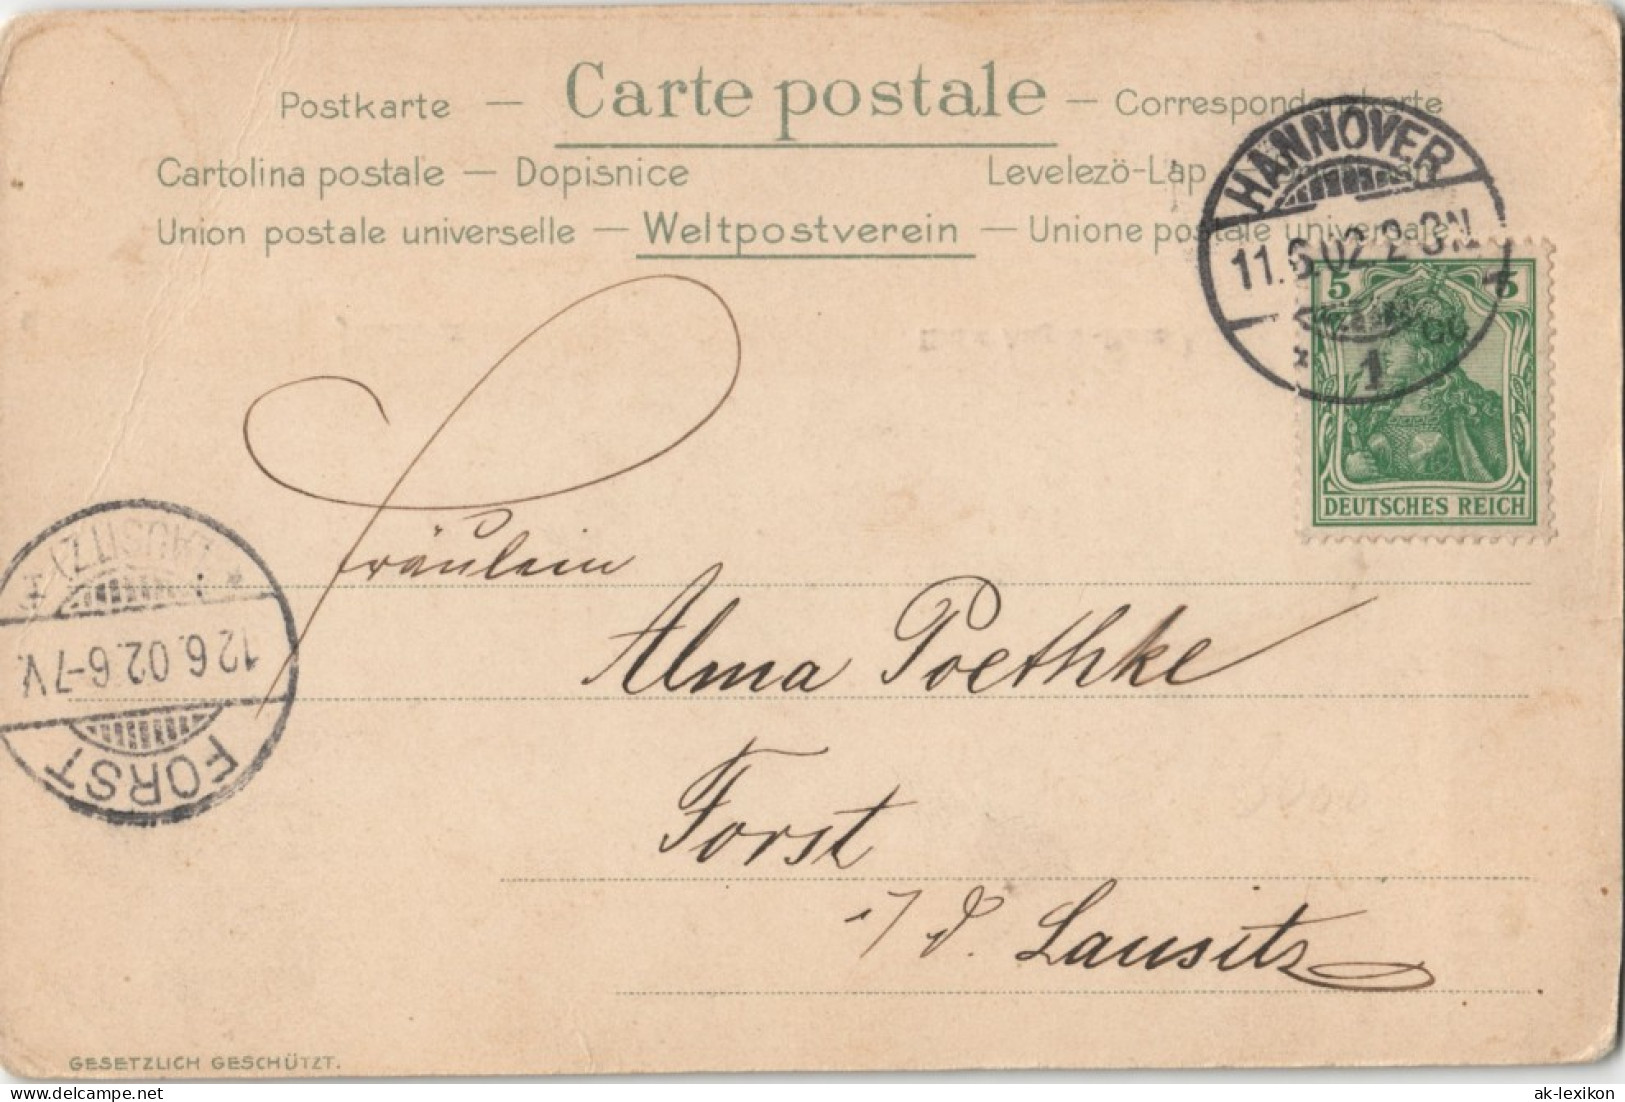 Postkarte — Carte postale — Correspondenzkarte
Cartolina postale — Dopisnice Levelezö-Lap
Union postale universelle — Weltpostverein — Unione postale universale
HANNOVER
11.6.02.2-3N
1
5 5
DEUTSCHES REICH
Fräulein
Alma Poethke
Forst
i/d. Lausitz
FORST
12.6.02.6-7V.
(LAUSITZ)
GESETZLICH GESCHÜTZT.
delcampe.net
ak-lexikon